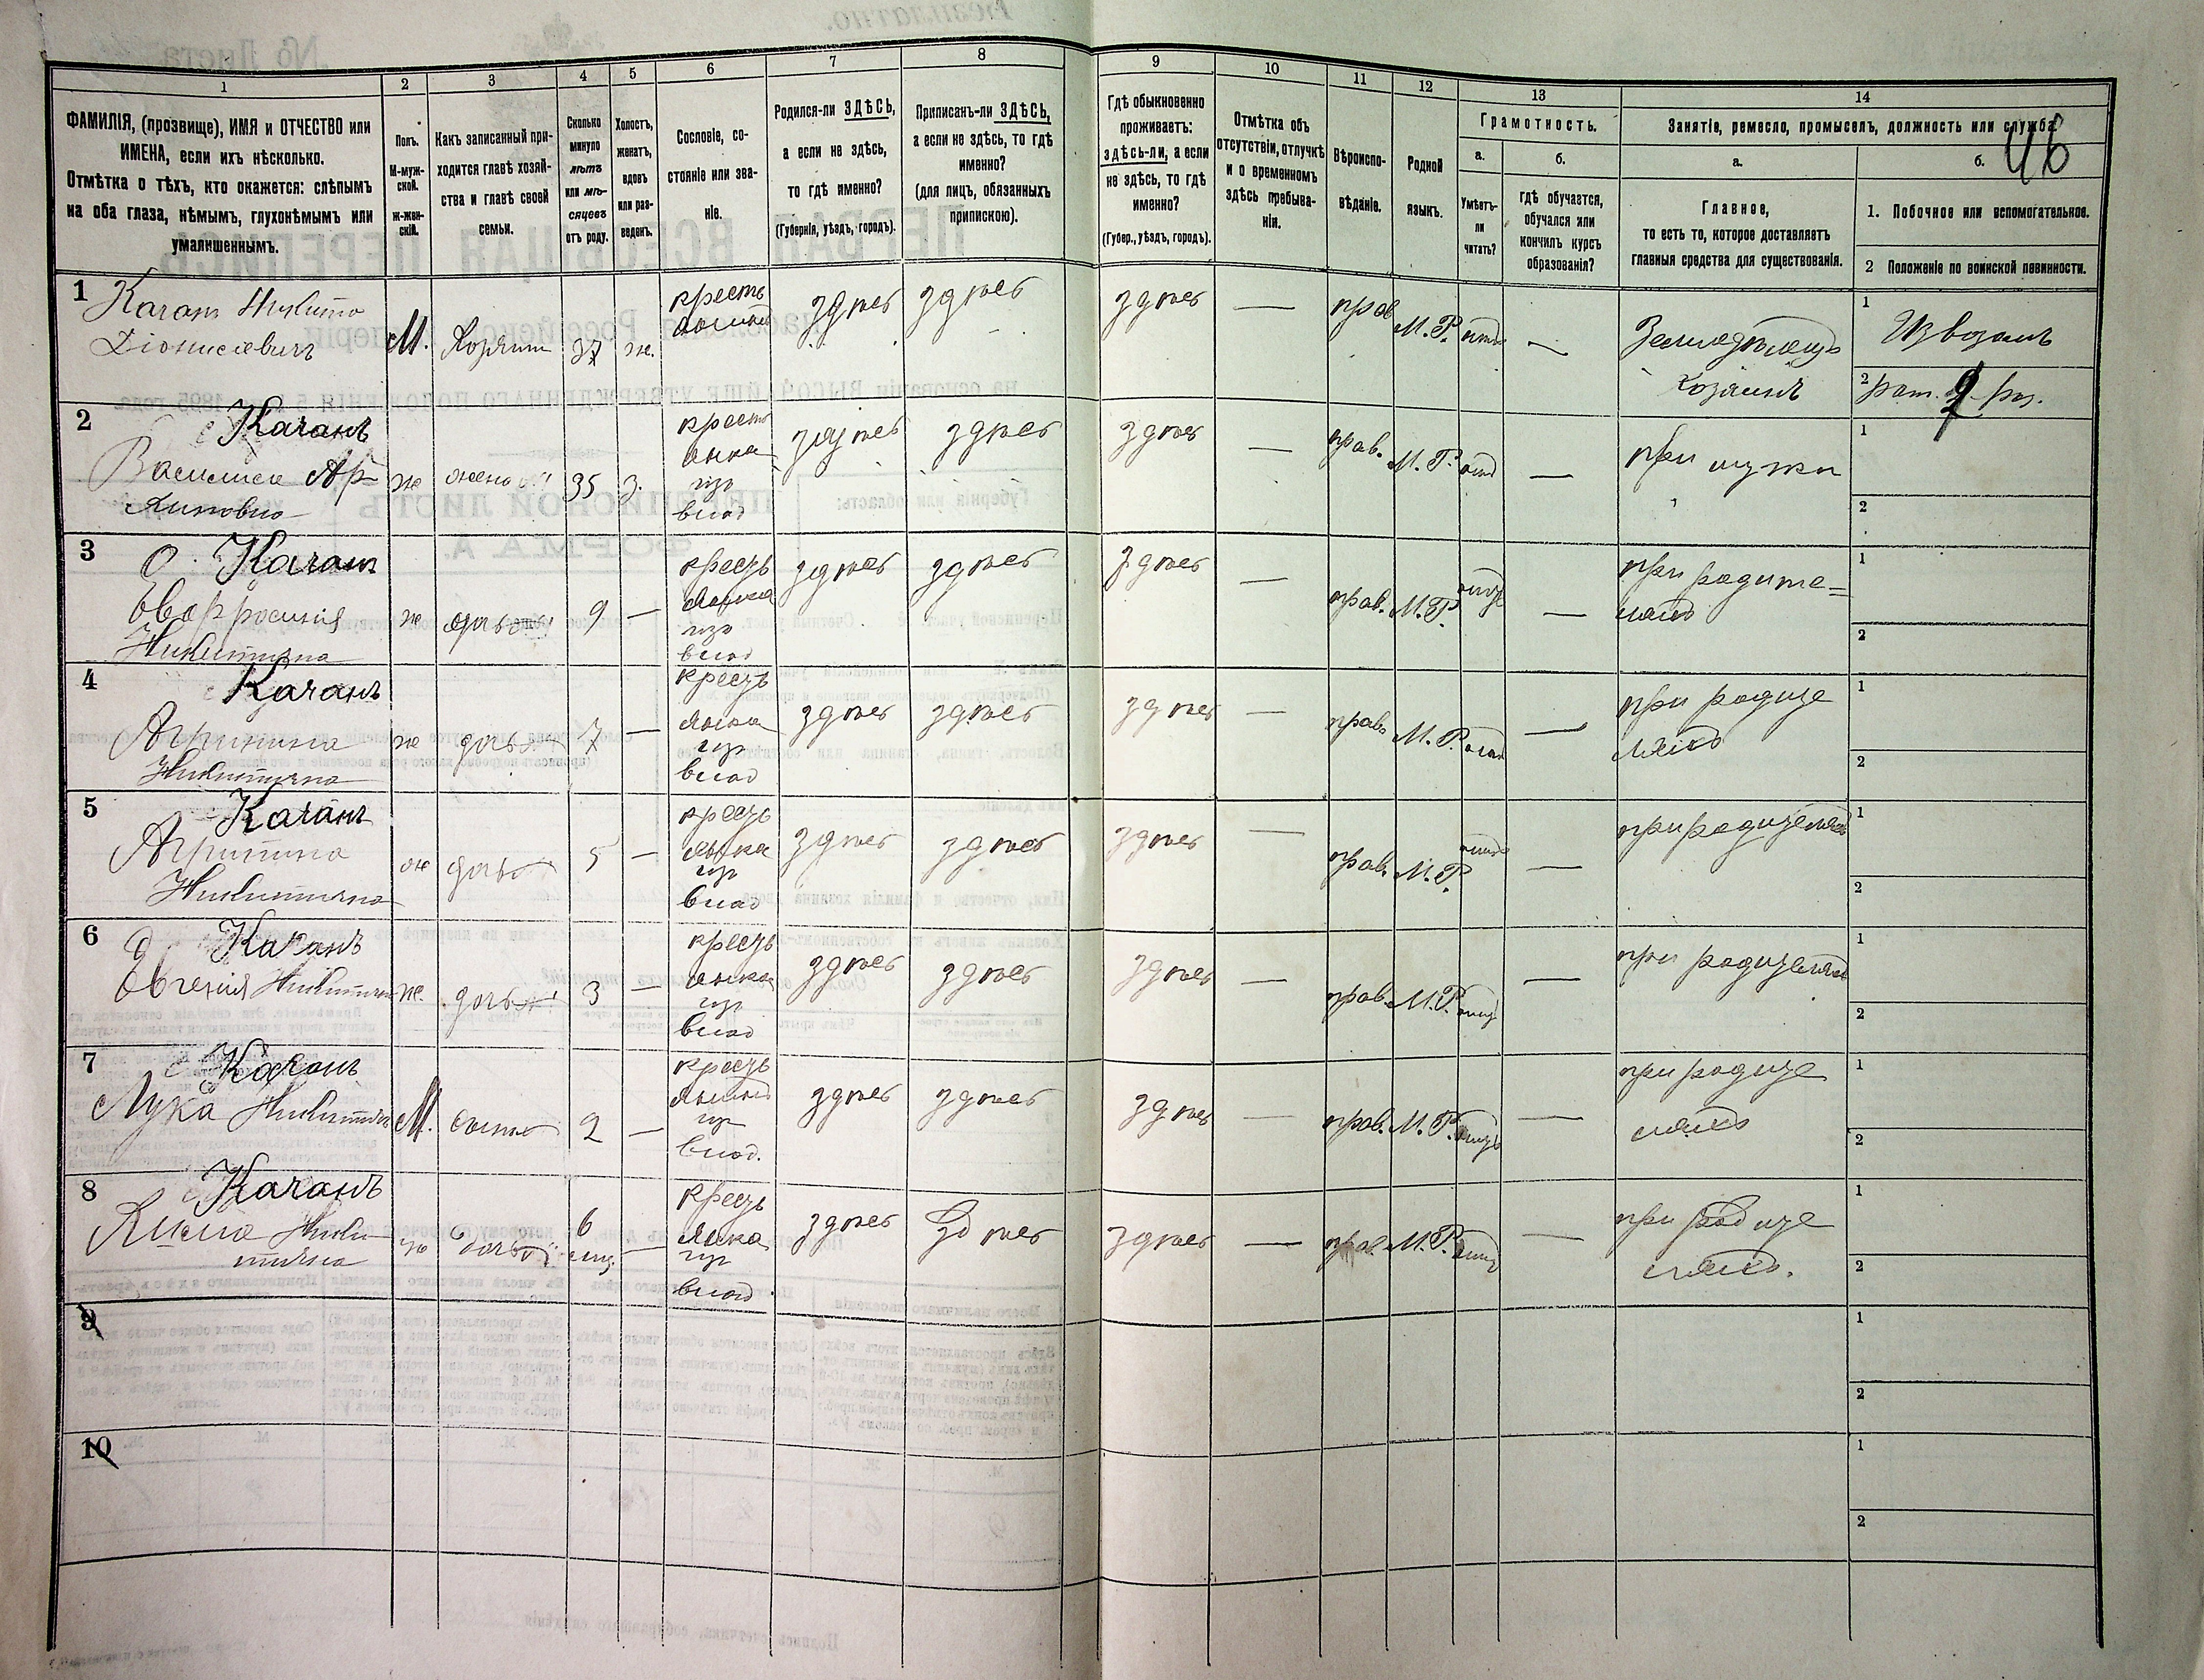 1
2
3
4
5
6
7
8
9
10
11
12
13
14
ФАМИЛІЯ, (прозвище), ИМЯ и ОТЧЕСТВО или
ИМЕНА, если ихъ нѣсколько.
Отмѣтка о тѣхъ, кто окажется: слѣпымъ
на оба глаза, нѣмымъ, глухонѣмымъ или
умалишеннымъ.
Полъ.
М-муж-
ской.
Ж-жен-
скій.
Какъ записанный при-
ходится главѣ хозяй-
ства и главѣ своей
семьи.
Сколько
минуло
лѣтъ
или мѣ-
сяцевъ
отъ роду.
Холостъ,
женатъ,
вдовъ
или раз-
веденъ.
Сословіе, со-
стояніе или зва-
ніе.
Родился-ли ЗДѢСЬ,
а если не здѣсь,
то гдѣ именно?
(Губернія, уѣздъ, городъ).
Приписанъ-ли ЗДѢСЬ,
а если не здѣсь, то гдѣ
именно?
(для лицъ, обязанныхъ
припискою).
Гдѣ обыкновенно
проживаетъ:
здѣсь-ли, а если
не здѣсь, то гдѣ
именно?
(Губер., уѣздъ, городъ).
Отмѣтка объ
отсутствіи, отлучкѣ
и о временномъ
здѣсь пребыва-
ніи.
Вѣроиспо-
вѣданіе.
Родной
языкъ.
Грамотность.
а.
Умѣетъ-
ли
читать?
б.
гдѣ обучается,
обучался или
кончилъ курсъ
образованія?
Занятіе, ремесло, промыселъ, должность или служба.
46
а.
Главное,
то есть то, которое доставляетъ
главныя средства для существованія.
б.
1. Побочное или вспомогательное.
2 Положеніе по воинской повинности.
1
Качан Никита
Діонисіевичъ
М.
37
ж.
крестъ
здѣсь
здѣсь
здѣсь
—
прав
М. Р.
—
Земледѣлецъ
хозяинъ
1
Извозомъ
2
рат. 2 раз.
2
Качанъ
Василиса Ар-
ж
жена
35
з.
крест
янка
из
влад
здѣсь
здѣсь
здѣсь
—
прав.
М. Р.
—
при мужи
1
2
3
Качан
Евфросинія
Никитична
ж
дочь
9
—
кресть
янка
из
влад
здѣсь
здѣсь
здѣсь
—
прав.
М. Р.
—
при родите=
ляхъ
1
2
4
Качанъ
Агрипина
Никитична
ж
дочь
7
—
кресть
янка
из
влад
здѣсь
здѣсь
здѣсь
—
прав.
М. Р.
—
при родите
ляхъ
1
2
5
Качанъ
Агрипина
Никитична
ж
дочь
5
—
кресть
янка
из
влад
здѣсь
здѣсь
здѣсь
—
прав.
М. Р.
—
при родителяхъ
1
2
6
Качанъ
Евгенія Никитична
ж.
дочь
3
—
кресть
янка
из
влад
здѣсь
здѣсь
здѣсь
—
прав.
М. Р.
—
при родителяхъ
1
2
7
Качанъ
Лука Никитичъ
М.
сынъ
2
—
кресть
янинъ
из
влад.
здѣсь
здѣсь
здѣсь
—
прав.
М. Р.
—
при родите
ляхъ
1
2
8
Качанъ
Ники
тична
ж
дочь
6
мц.
—
кресть
янка
из
влад
здѣсь
здѣсь
здѣсь
—
прав.
М. Р.
—
при родите
ляхъ.
1
2
9
1
2
10
1
2